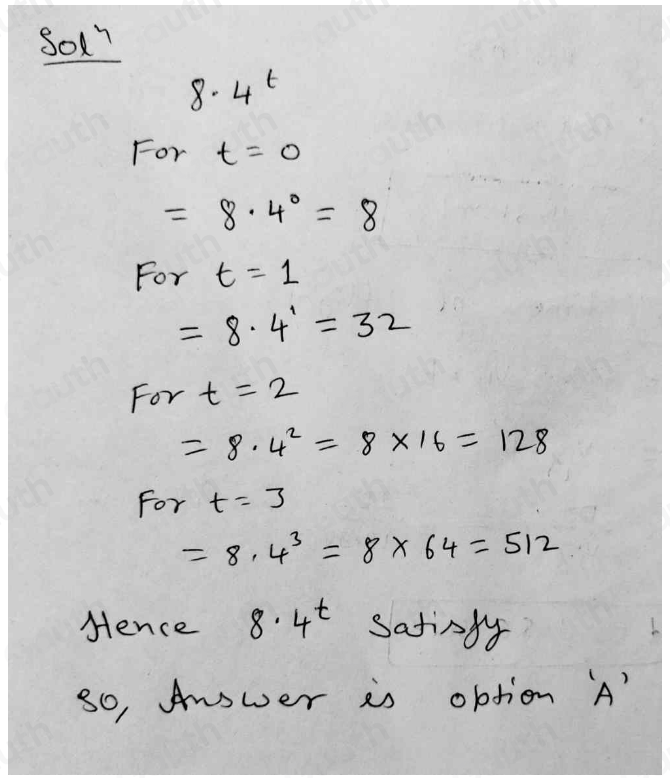 Solⁿ
8·4ᵗ
For t = 0
= 8·4⁰ = 8
For t = 1
= 8·4¹ = 32
For t = 2
= 8·4² = 8 × 16 = 128
For t = 3
= 8·4³ = 8 × 64 = 512
Hence 8·4ᵗ Satisfy
so, Answer is option 'A'